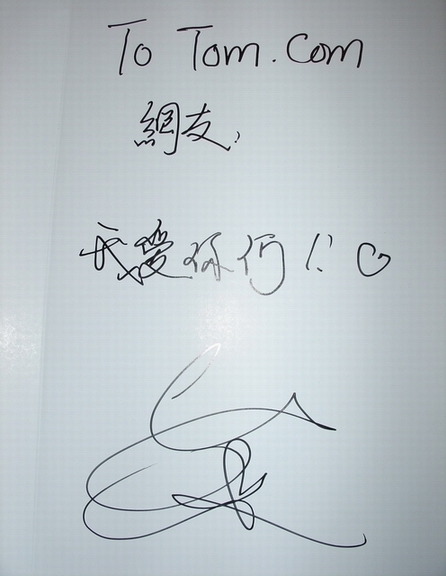 To Tom.Com
網友,
我愛你们!! ♡